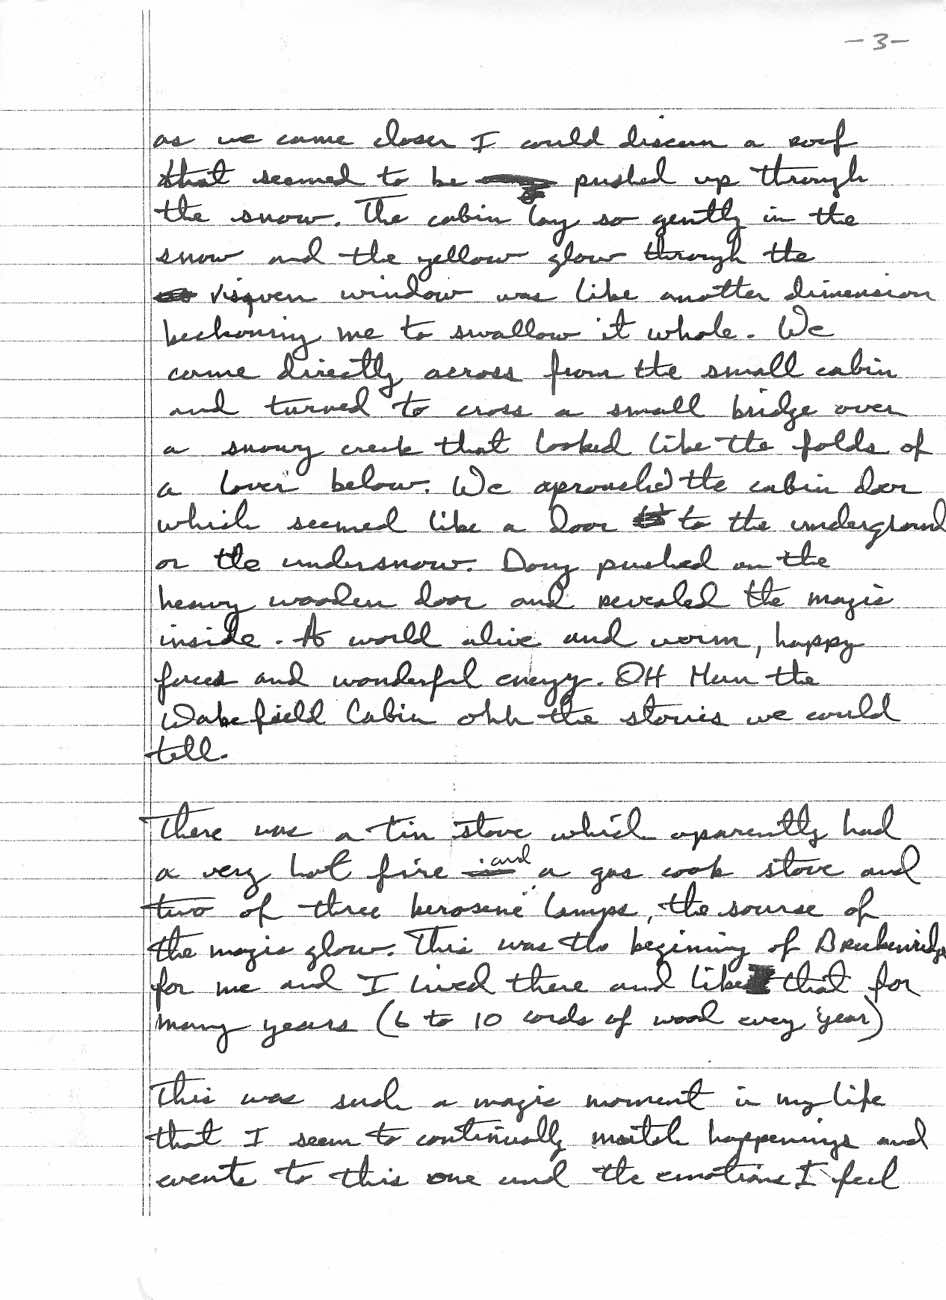 -3-
as we came closer I could discern a roof
that seemed to be pushed up through
the snow. The cabin lay so gently in the
snow and the yellow glow through the
window was like another dimension
beckoning me to swallow it whole. We
came directly across from the small cabin
and turned to cross a small bridge over
a snowy creek that looked like the folds of
a lover below. We aproached the cabin door
which seemed like a door to the underground
or the undersnow. Doug pushed on the
heavy wooden door and revealed the magic
inside. A world alive and warm, happy
faces and wonderful energy. OH Man the
Wakefield Cabin ohh the stories we could
tell.
There was a tin stove which aparently had
a very hot fire and a gas cook stove and
two of three kerosene lamps, the sourse of
the magic glow. This was the begining of Breckenridge
for me and I lived there and like that for
many years (6 to 10 cords of wood every year)
This was such a magic moment in my life
that I seem to continually match happenings and
events to this one and the emotions I feel